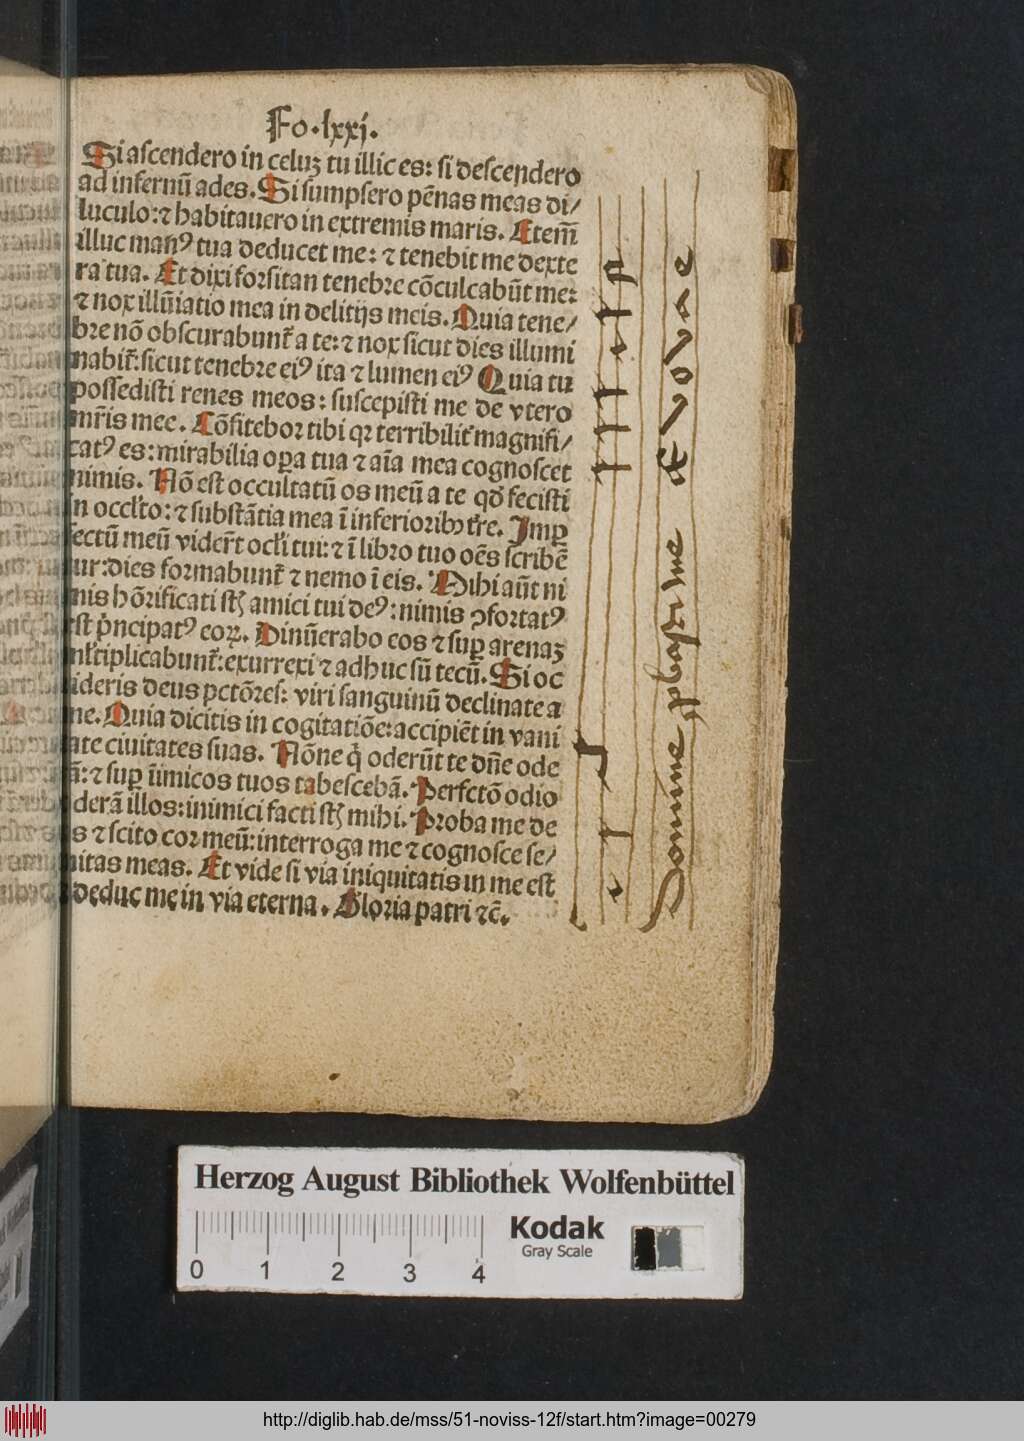 Fo.lxxj.
Si ascendero in celuʒ tu illic es: si descendero
ad infernū ades. Si sumpsero pēnas meas di/
luculo: ⁊ habitauero in extremis maris. Etem̄
illuc manꝰ tua deducet me: ⁊ tenebit me dexte
ra tua. Et dixi forsitan tenebre cōculcabūt me:
⁊ nox illūiatio mea in delitijs meis. Quia tene/
bre nō obscurabunt̄ a te: ⁊ nox sicut dies illumi
nabit̄: sicut tenebre eiꝰ ita ⁊ lumen eiꝰ Quia tu
possedisti renes meos: suscepisti me de vtero
mr̄is mee. Cōfitebor tibi qꝛ terribilit̄ magnifi/
catꝰ es: mirabilia oꝑa tua ⁊ aīa mea cognoscet
nimis. Nō est occultatū os meū a te qd̄ fecisti
in occl̄to: ⁊ substātia mea ī inferioribꝫ t̄re. Imꝑ
fectū meū vider̄t ocl̄i tui: ⁊ ī libro tuo oēs scribē
ur: dies formabunt̄ ⁊ nemo ī eis. Mihi aūt ni
nis hōrificati st̄ amici tui deꝰ: nimis ꝯfortatꝰ
est p̄ncipatꝰ eoꝝ. Dinūerabo eos ⁊ suꝑ arenaʒ
nl̄tiplicabunt̄: exurrexi ⁊ adhuc sū tecū. Si oc
ideris deus pctōres: viri sanguinū declinate a
ne. Quia dicitis in cogitatiōe: accipiēt in vani
ate ciuitates suas. Nōne q̇ oderūt te dn̄e ode
ā: ⁊ suꝑ īimicos tuos tabescebā. Perfctō odio
derā illos: inimici facti st̄ mihi. Proba me de
s ⁊ scito cor meū: interroga me ⁊ cognosce se/
nitas meas. Et vide si via iniquitatis in me est
deduc me in via eterna. Gloria patri ⁊c̄.
Domine ꝓbasti me Æ v o v a e
Herzog August Bibliothek Wolfenbüttel
Kodak
Gray Scale
0 1 2 3 4
http://diglib.hab.de/mss/51-noviss-12f/start.htm?image=00279